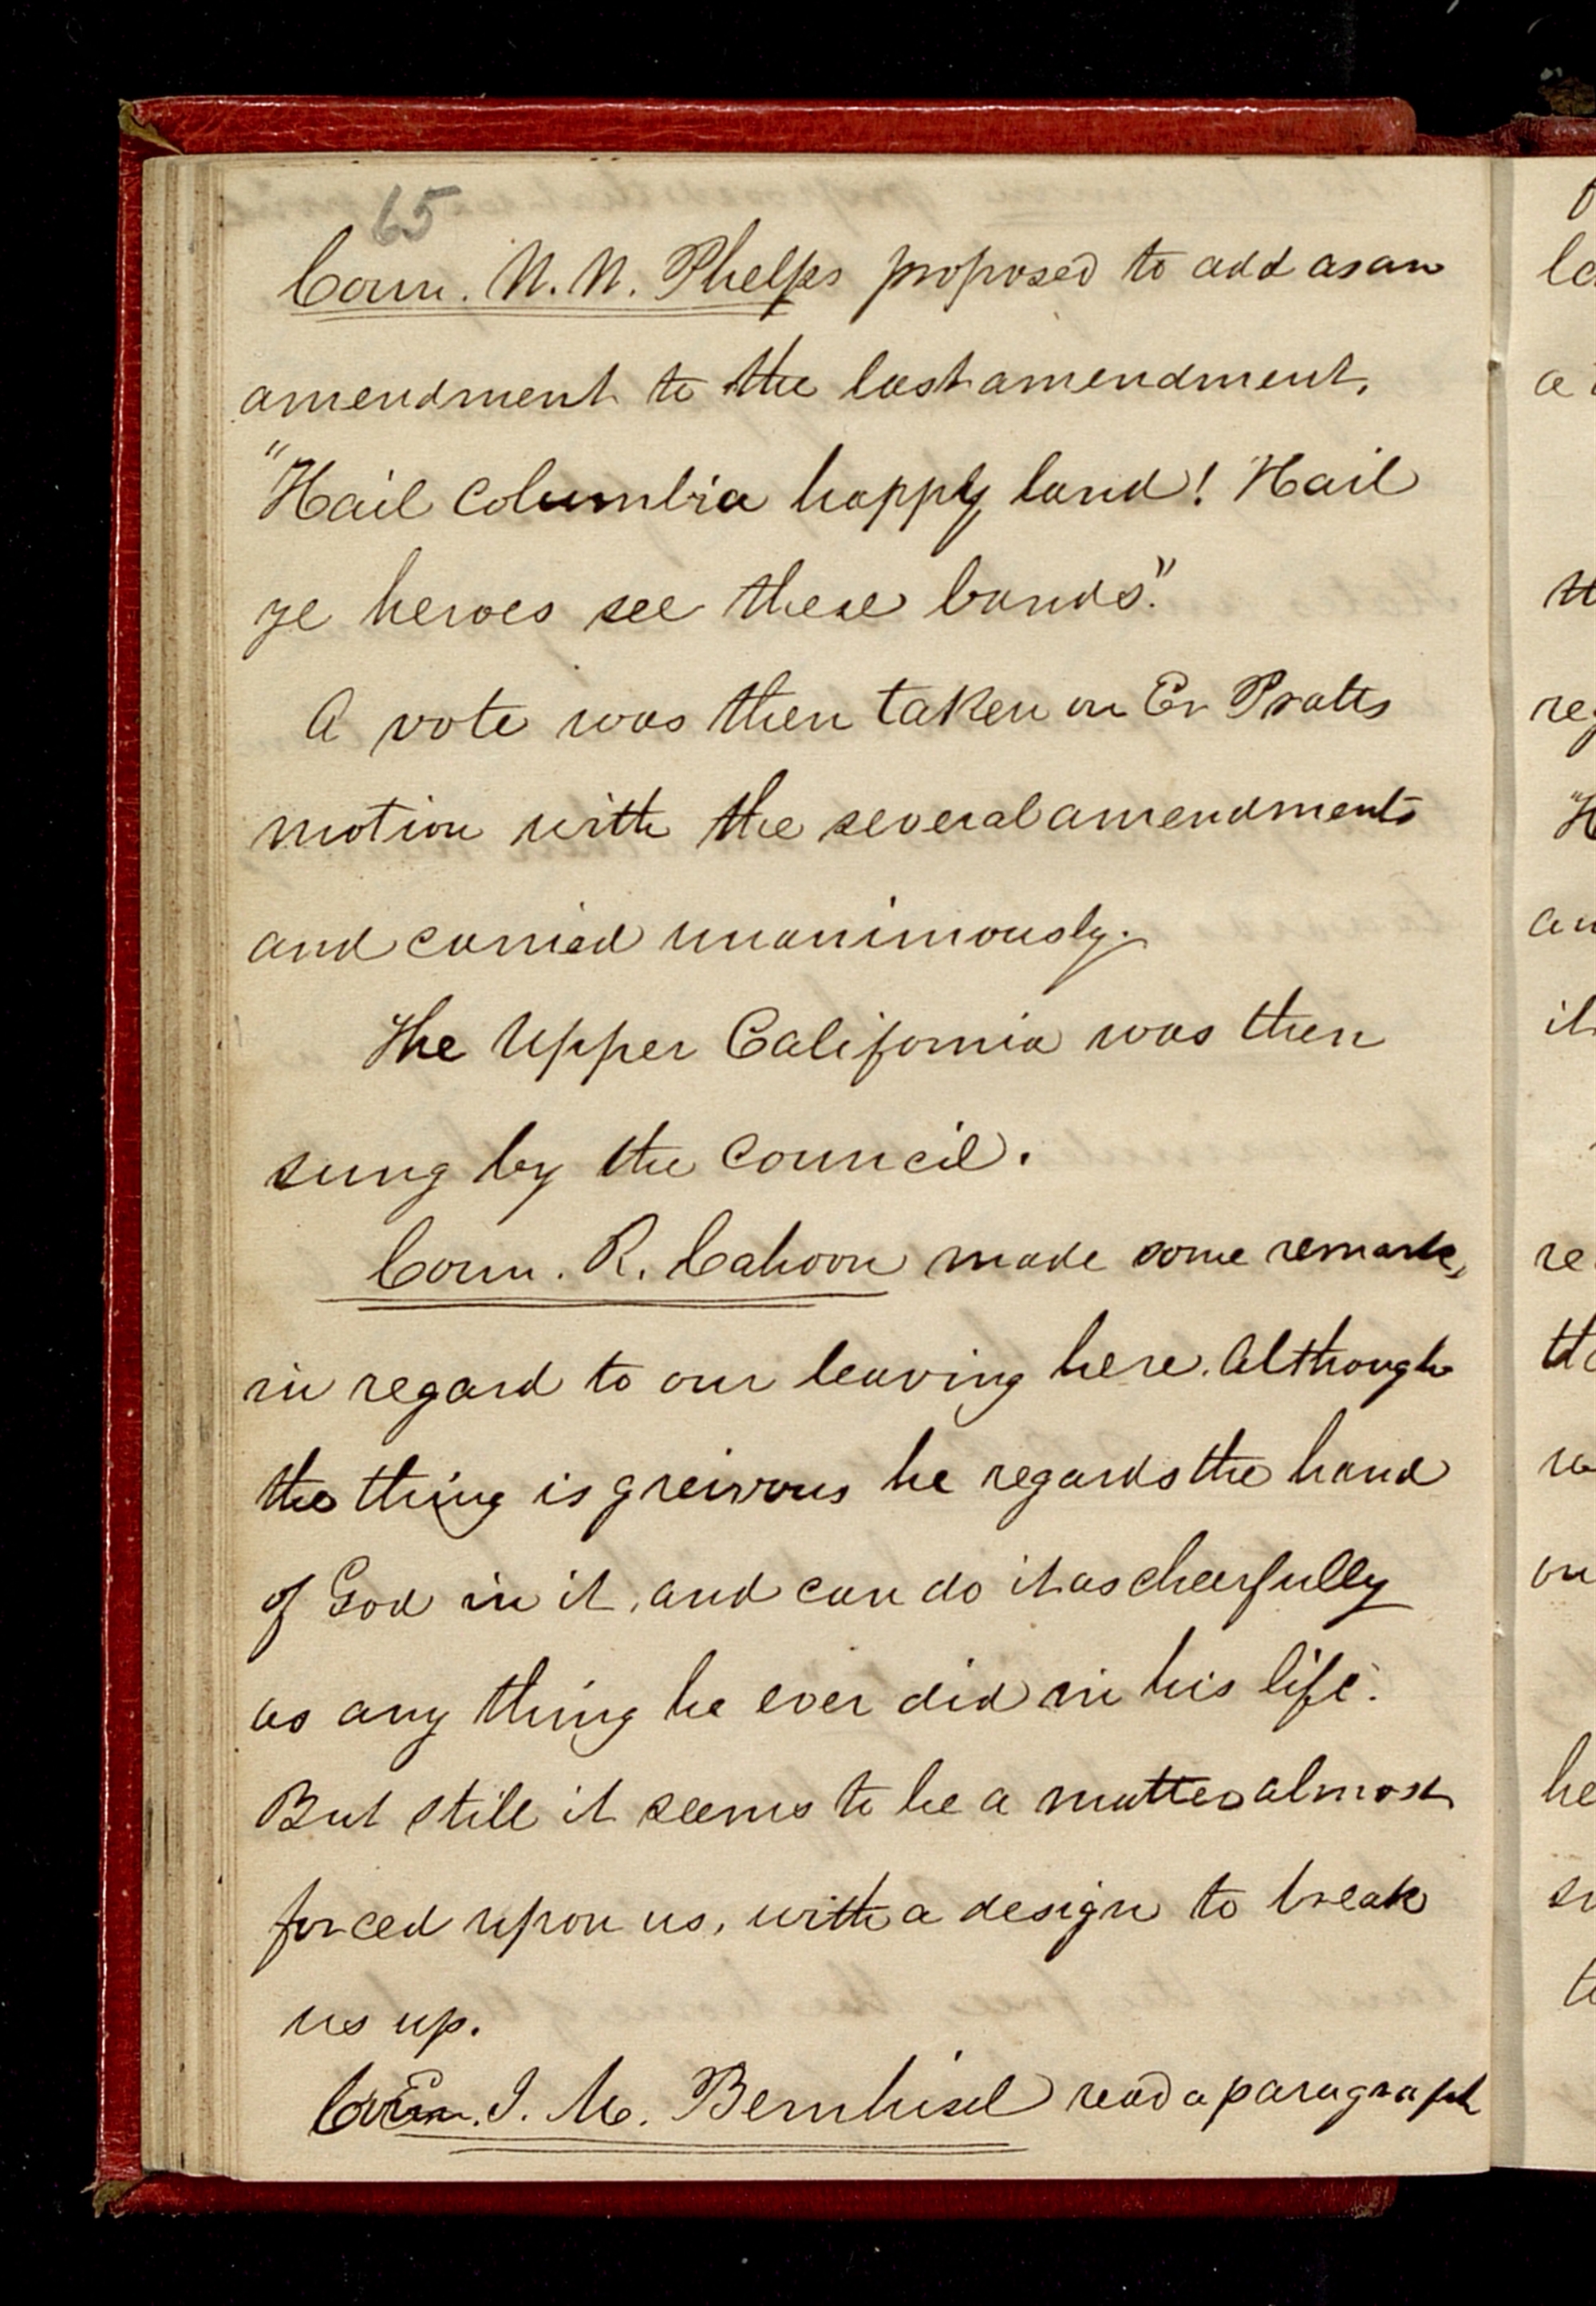 65
Coun. W. W. Phelps proposed to add as an
amendment to the last amendment,
"Hail Columbia happy land! Hail
ye heroes see these bands."
A vote was then taken on Er Pratts
motion with the several amendments
and carried unanimously.
The Upper California was then
sung by the council.
Coun. R. Cahoon made some remarks
in regard to our leaving here. Although
the thing is greivous he regards the hand
of God in it, and can do it as cheerfully
as any thing he ever did in his life.
But still it seems to be a matter almost
forced upon us, with a design to break
us up.
Coun. J. M. Bernhisel read a paragraph